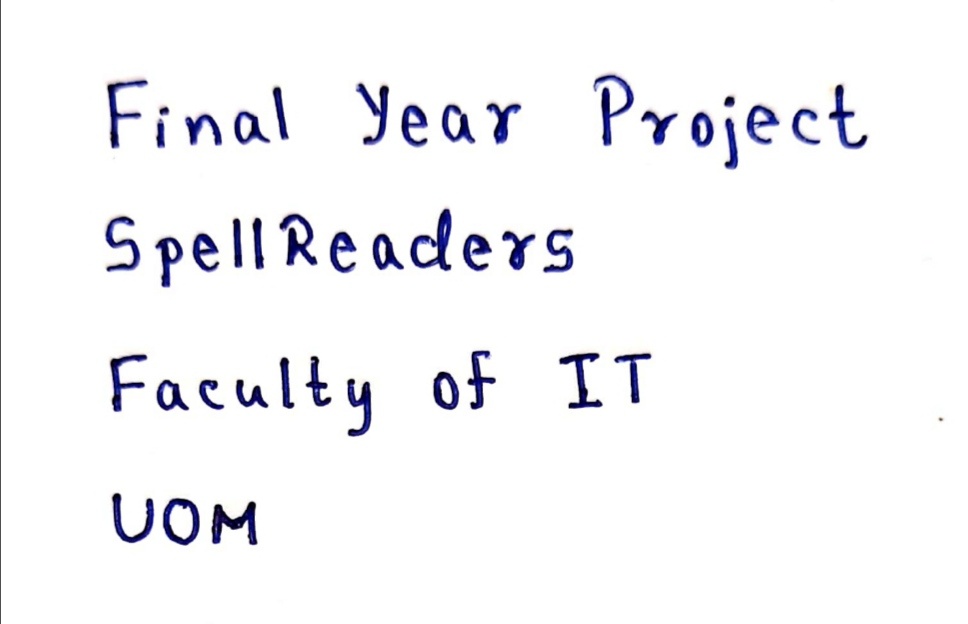 Final Year Project
SpellReaders
Faculty of IT
UOM